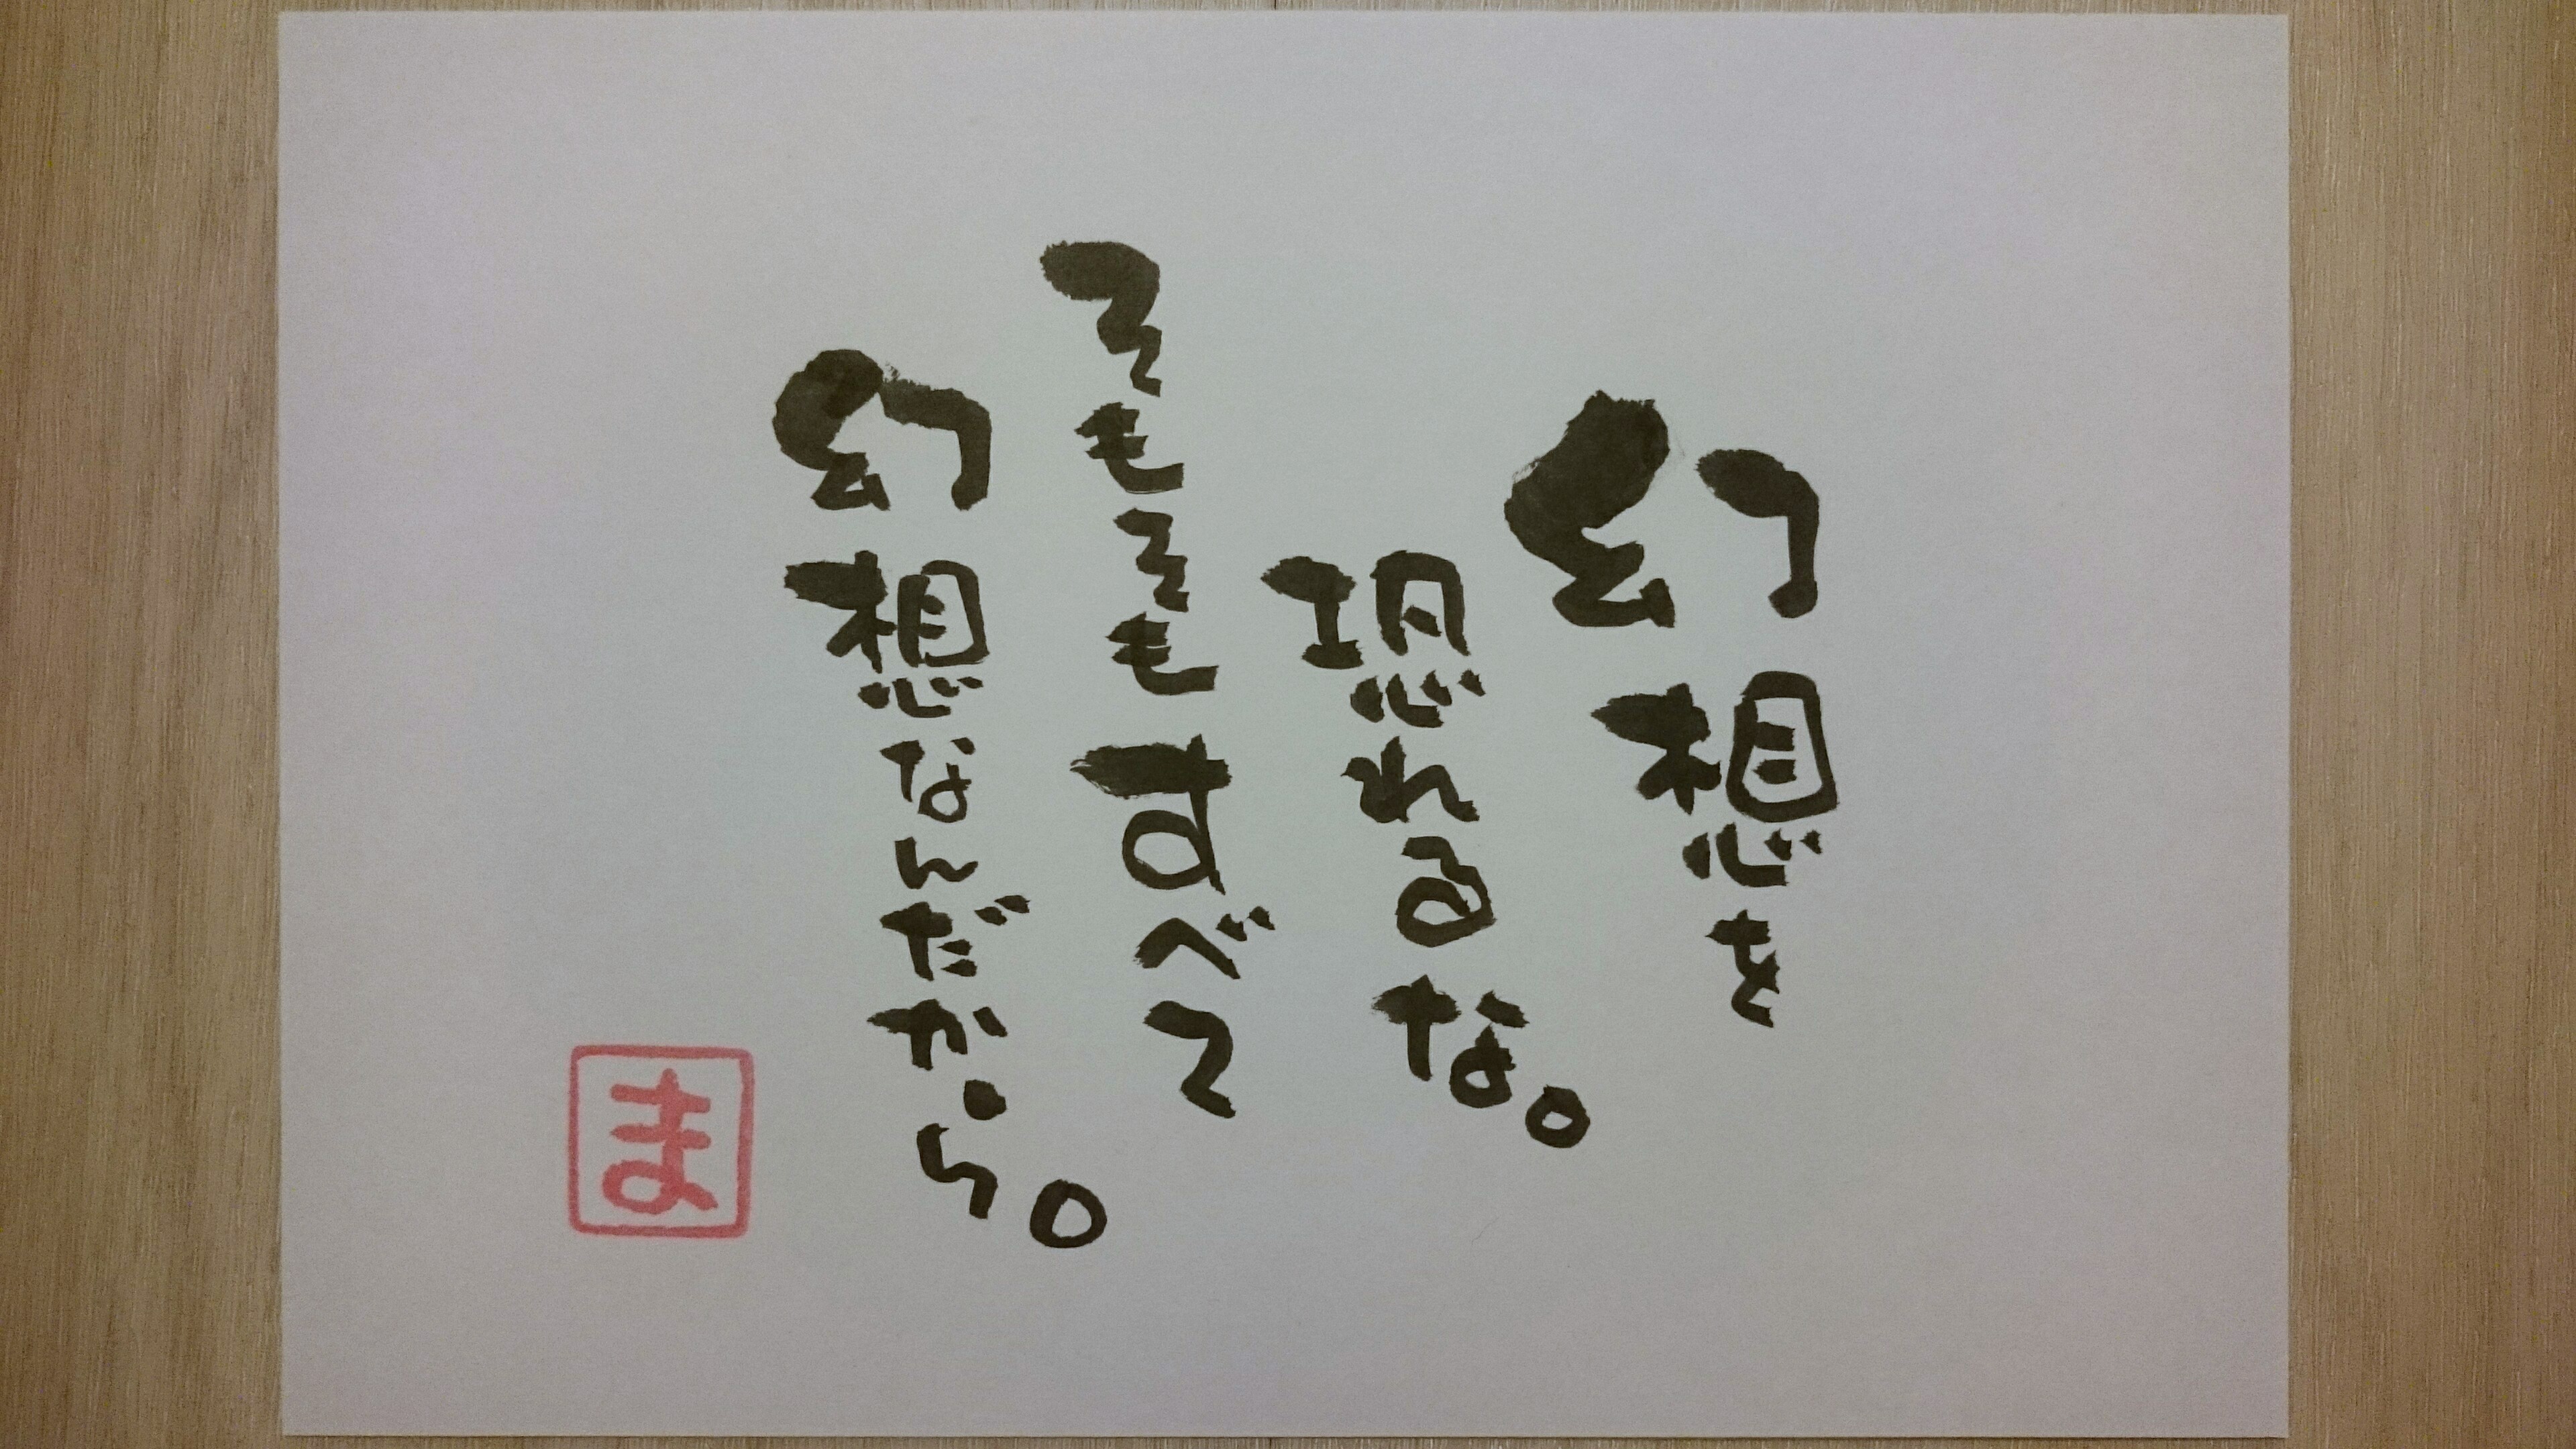 幻想を
恐れるな。
そもそもすべて
幻想なんだから。
ま